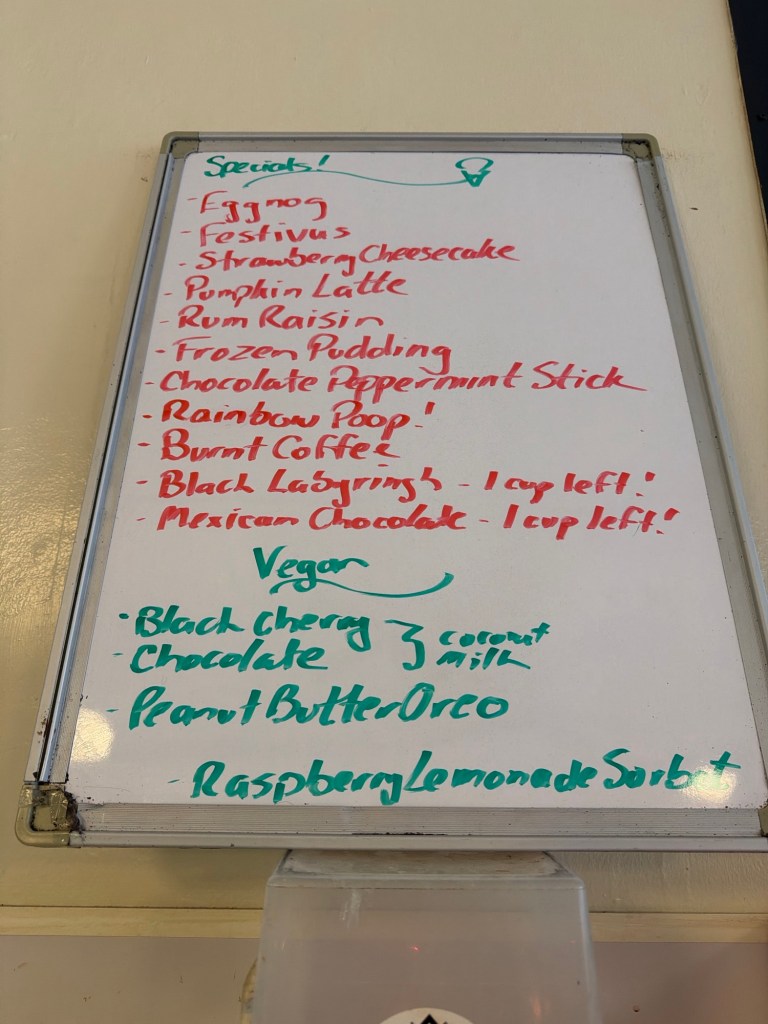 Specials!
- Eggnog
- Festivus
- Strawberry Cheesecake
- Pumpkin Latte
- Rum Raisin
- Frozen Pudding
- Chocolate Peppermint Stick
- Rainbow Poop!
- Burnt Coffee
- Black Labyrinth - 1 cup left!
- Mexican Chocolate - 1 cup left!
Vegan
- Black Cherry } coconut
- Chocolate } milk
- Peanut Butter Oreo
- Raspberry Lemonade Sorbet